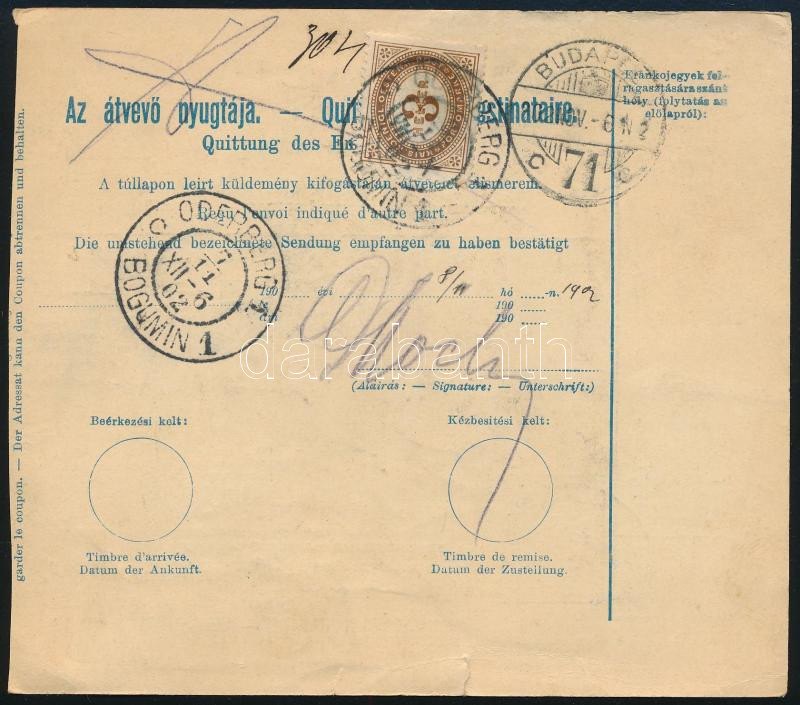 304
Az átvevő nyugtája. — Quit stinataire.
Quittung des Em
A túllapon leirt küldemény kifogástalan átvételét elismerem.
Reçu l'envoi indiqué d'autre part.
Die umstehend bezeichnete Sendung empfangen zu haben bestätigt
190 évi 8/11 hó n. 1902
190
190
(Aláirás: — Signature: — Unterschrift:)
Beérkezési kelt:
Kézbesitési kelt:
Timbre d'arrivée.
Datum der Ankunft.
Timbre de remise.
Datum der Zustellung.
garder le coupon. — Der Adressat kann den Coupon abtrennen und behalten.
3
ODERBERG
BUDAPE
NOV. -6
C 71 C
ragasztására
hely (folytatás az
előlapról):
ODERBERG 1
7
11
XII-6
02
BOGUMIN 1
Darabanth